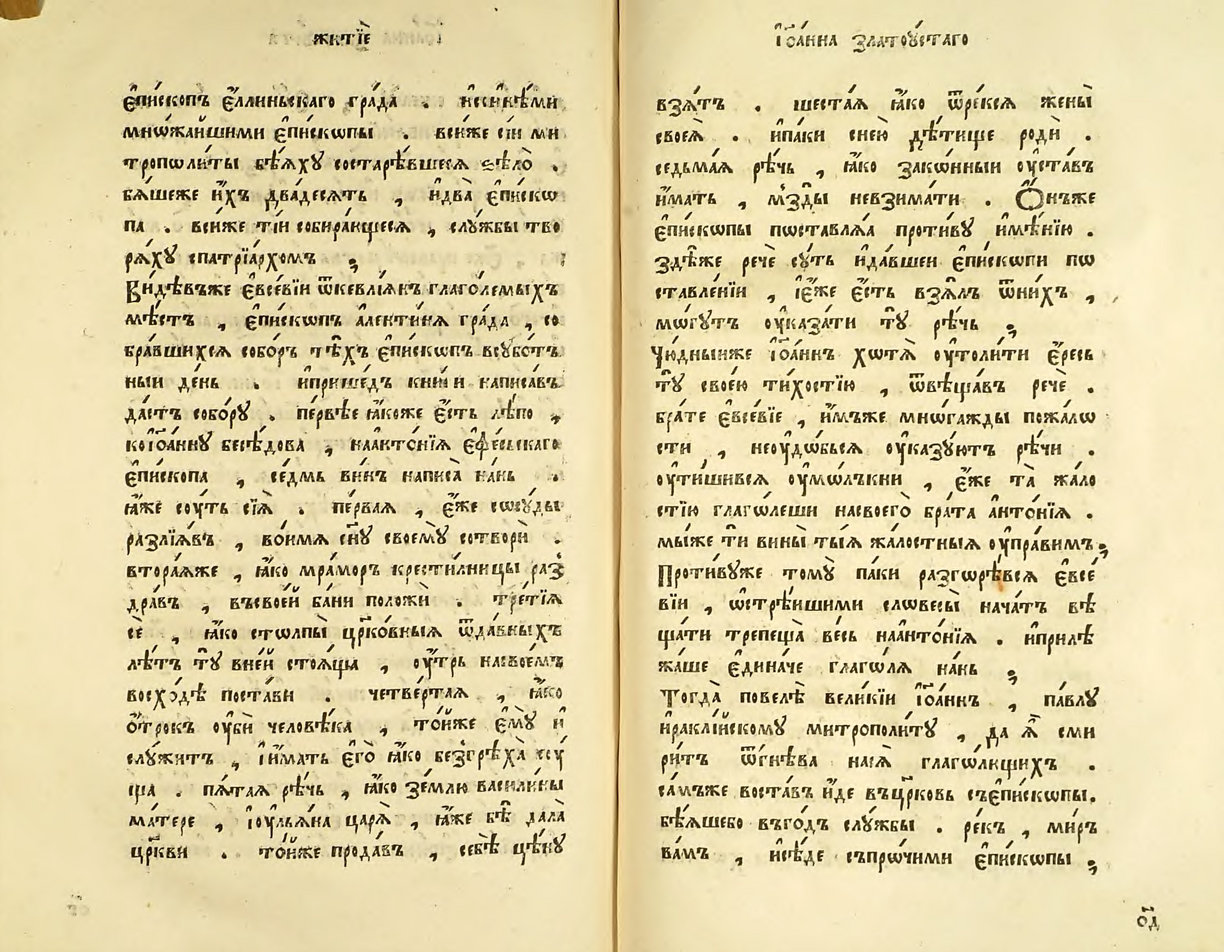 житїѐ
є҆пи́скопъ є҆́ллиньскаго гра́да . нєси́нѣми
мнѡ́жаишими є҆пи́скѡпы . вси́же сїи ми
трополи́ты бѣ́ѧхꙋ состарѣ́вшєсѧ ѕѣлѡ̀ .
бѧ́шеже и҆́хъ два́десѧть , и҆два̀ є҆пи́скѡ
па . вси́же ті́и собира́ющесѧ , слꙋ́жбы тво
рѧ́хꙋ спатрїа́рхомъ ;
Ви́дѣвъже є҆vсе́вїи ѿкєвлїѧ́нъ глаго́лемыхъ
мѣ́стъ , є҆пи́скѡпъ алєнти́нѧ гра́да , со
бра́вшихсѧ собо́ръ тѣ́хъ є҆пи́скѡпъ всꙋбо́тъ
ныи де́нь . и҆прише́дъ кни́ги написа́въ
да́стъ собо́рꙋ . пе́рвѣе ꙗ҆́коже є҆́сть лѣ́по ,
коі҆ѡа́ннꙋ бесѣ́дова , наанто́нїѧ є҆фе́сьскаго
є҆пи́скопа , се́дмь ви́нъ написа̀ на́нь .
ꙗ҆́же сꙋ́ть сїѧ̀ . пе́рваѧ , є҆́же сосꙋ́ды
разлїѧ́въ , во́имѧ сн҃ꙋ своемꙋ̀ сотворѝ .
втора́ѧже , ꙗ҆́ко мра́моръ крести́лницы раз
дра́въ , въсвое́й ба́ни положѝ . тре́тїѧ
сѐ , ꙗ҆́ко столпы̀ цр҃ко́вныѧ ѿда́вныхъ
лѣ́тъ тꙋ̀ вне́й стоѧ́ща , ѹ҆́трь насвое́мъ
восхо́дѣ поста́ви . четве́ртаѧ , ꙗ҆́ко
ѻ҆́трокъ ѹ҆бѝ человѣ́ка , то́йже є҆мꙋ̀ и
слꙋ́житъ , і҆и́мать є҆го̀ ꙗ҆́ко безгрѣха̀ сꙋ
ща . пѧ́таѧ рѣ́чь , ꙗ҆́ко зе́млю васили́ны
ма́тере , і҆ѹльѧ́на царѧ̀ , ꙗ҆́же бѣ̀ дала̀
цр҃кви . то́йже прода́въ , себѣ̀ цѣ́нꙋ
і҆ѡа́нна златоꙋ́стаго
взѧ́тъ . шеста́ѧ ꙗ҆́ко ѿре́ксѧ жены̀
своеѧ̀ . и҆па́ки сне́ю дѣ́тище родѝ .
седьма́ѧ рѣ́чь , ꙗ҆́ко зако́нныи ѹ҆ста́въ
и҆́мать , мзды̀ невзима́ти . Ѻ҆́нъже
є҆пи́скѡпы поставлѧ́ѧ проти́вꙋ и҆мѣ́нїю .
здѣ́же речѐ сꙋ́ть и҆да́вшеи є҆пи́скопи по
ставле́нїи , і҆є҆́же є҆́сть взѧ́лъ ѿни́хъ ,
мо́гꙋтъ ѹ҆каза́ти тꙋ̀ рѣ́чь ;
Чю́дныиже і҆ѡа́ннъ хотѧ̀ ѹ҆толи́ти є҆́ресь
тꙋ̀ свое́ю ти́хостїю , ѿвѣща́въ речѐ .
бра́те є҆vсе́вїе , и҆́мъже мно́гажды пожало
сти , неꙋдо́бьсѧ ѹ҆казꙋ́ютъ рѣ́чи .
ѹ҆ти́шивсѧ ѹ҆мо́лъкни , є҆́же та̀ жа́ло
стїю глаго́леши насвоего̀ бра́та а҆нто́нїѧ .
мы́же ти̑ вины̀ ты́ѧ жа́лостныѧ ѹ҆пра́вимъ ;
Проти́вꙋже томꙋ̀ па́ки разгорѣ́всѧ є҆vсе
вїи , ѡ҆стрѣ́ишими словесы̀ нача́тъ вѣ
ща́ти трепеща̀ ве́сь наанто́нїѧ . и҆прилѣ
жа́ше є҆дина́че глаго́лѧ на́нь ;
Тогда̀ повелѣ̀ вели́кїи і҆ѡа́ннъ , па́влꙋ
и҆ракли́йскомꙋ митрополи́тꙋ , да ѧ҆̀ сми
ри́тъ ѿгнѣ́ва насѧ̀ глаго́лющихъ .
са́мъже воста́въ и҆́де въцр҃ковь съє҆пи́скѡпы .
бѣ́ѧшебо въго́дъ слꙋ́жбы . ре́къ , ми́ръ
ва́мъ , и҆сѣ́де съпро́чими є҆пи́скѡпы ;
ѻ҃д